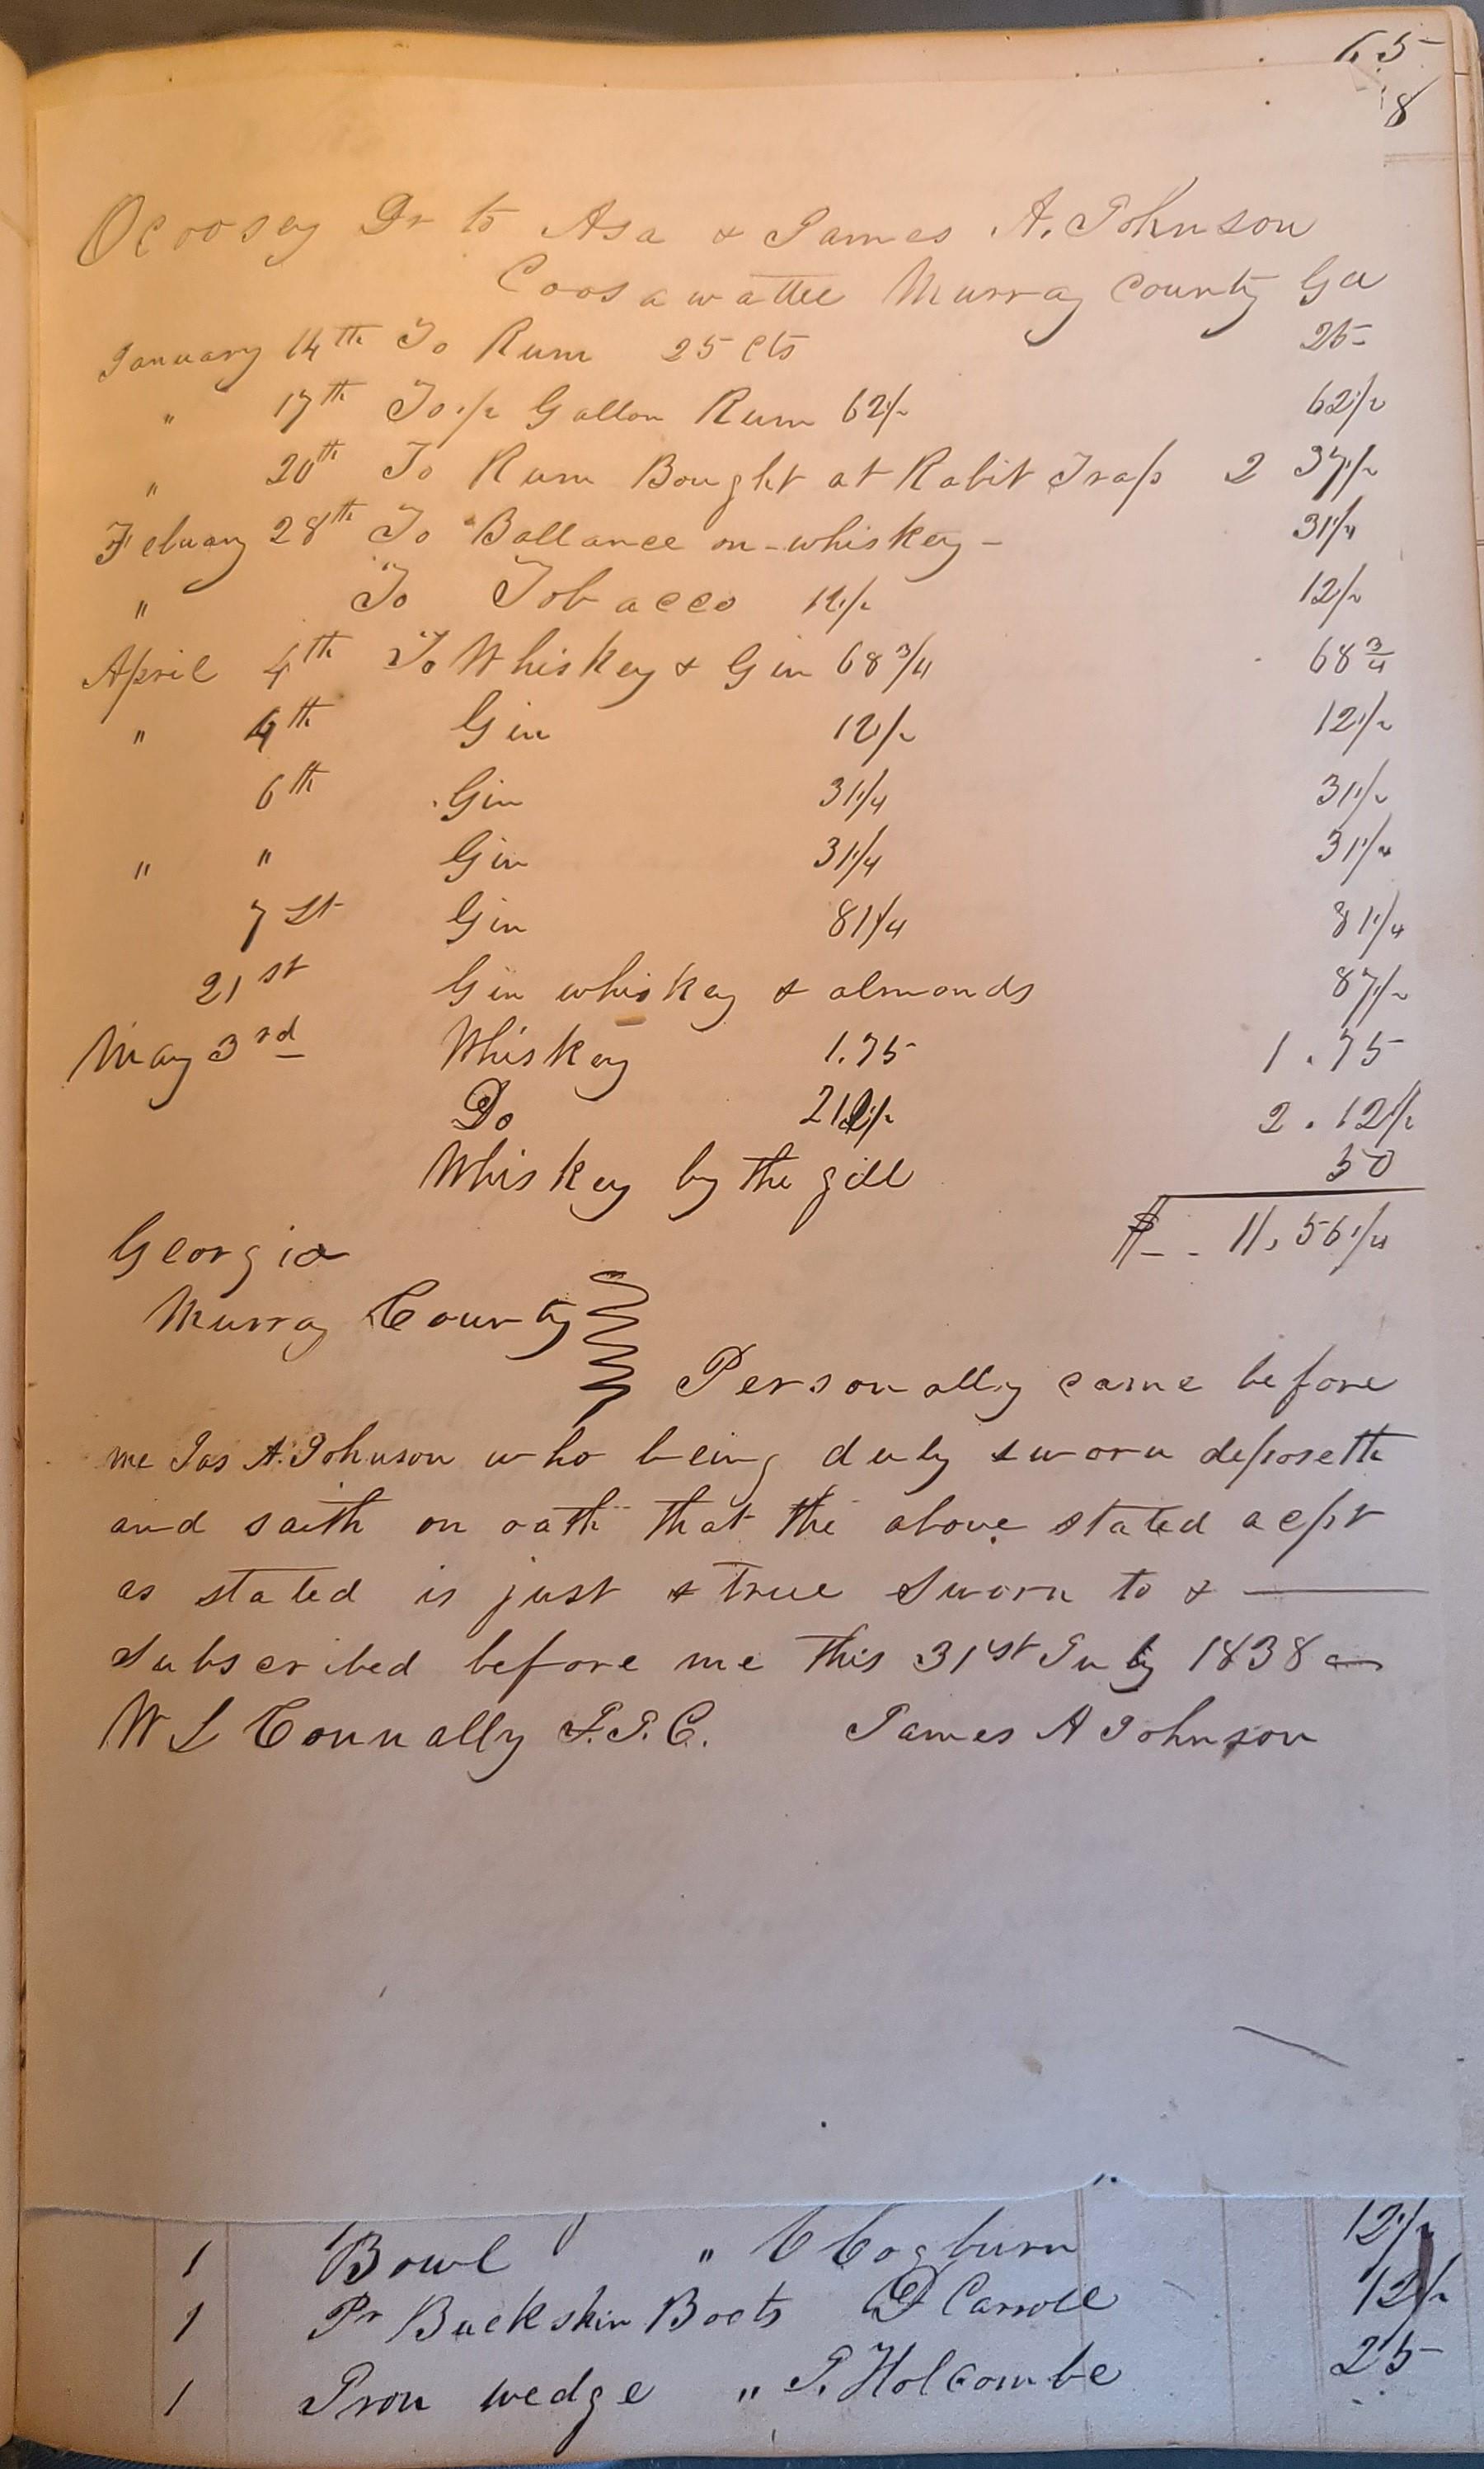 65
8
Ocoosey Dr to Asa & James A. Johnson
Coosawattee Murray County Ga
January 14th To Rum 25 Cts 25
" 17th To 1/2 Gallon Rum 62 1/2 62 1/2
" 20th To Rum Bought at Rabit Trap 2 37 1/2
Febuary 28th To Ballance on - whiskey - 31 1/4
" To Tobacco 12 1/2 12 1/2
April 4th To Whiskey & Gin 68 3/4 68 3/4
" 4th Gin 12 1/2 12 1/2
6th Gin 31 1/4 31 1/2
" " Gin 31 1/4 31 1/4
7st Gin 81 1/4 81 1/4
21st Gin whiskey & almonds 87 1/2
May 3rd Whiskey 1.75 1.75
Do 212 1/2 2.12 1/2
Whiskey by the gill 50
$ 11,56 1/4
Georgia
Murray County
Personally came before
me Jas A. Johnson who being duly sworn deposeth
and saith on oath that the above stated acpt
as stated is just & true Sworn to &
Subscribed before me this 31st July 1838
W L Connally J.I.C. James A Johnson
1 Bowl " C Cogburn 12 1/2
1 Pr Buckskin Boots D Carroll 12 1/2
1 Iron wedge " P. Holcombe 25